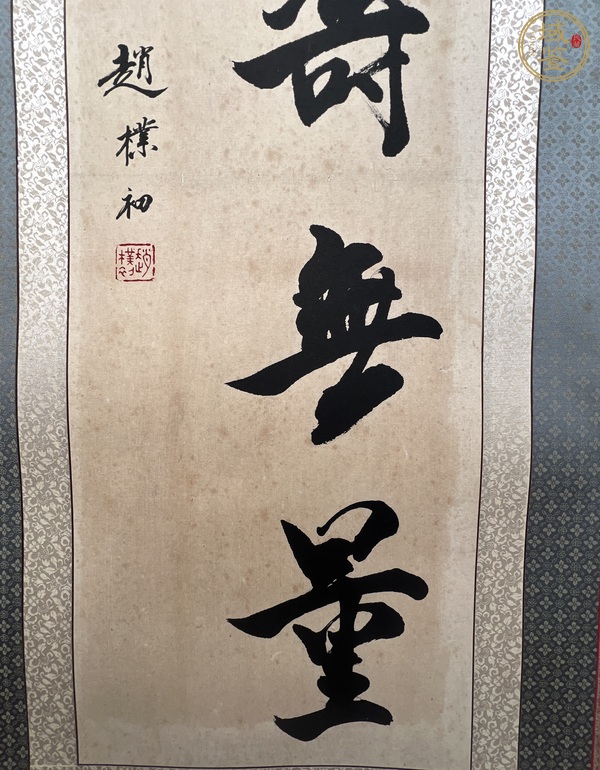 壽無量
趙樸初
趙樸初